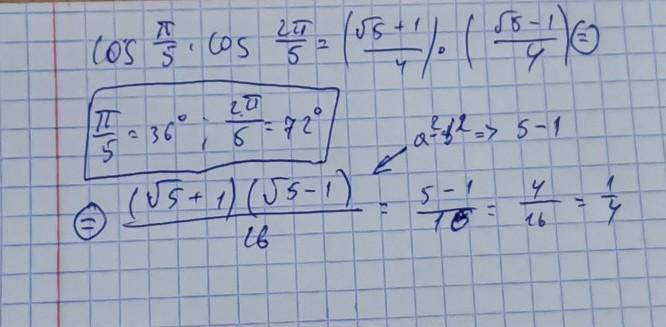 cos π/5 · cos 2π/5 = ((√5 + 1)/4) · ((√5 - 1)/4) (=)
π/5 = 36° ; 2π/5 = 72°
a² - b² => 5 - 1
(=) (√5 + 1)(√5 - 1)/16 = (5 - 1)/16 = 4/16 = 1/4